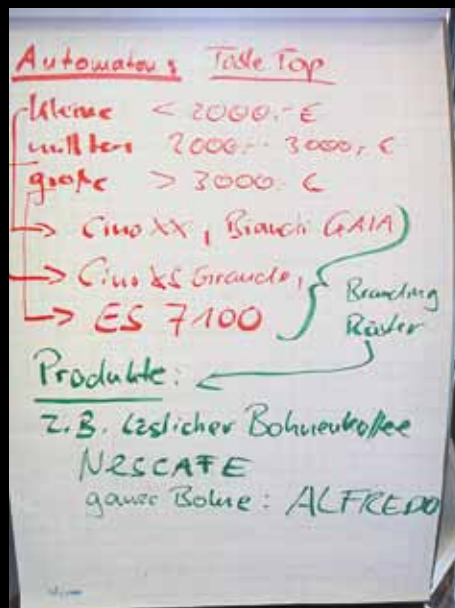 Automaten: Table Top
kleine < 2000.- €
mittlere 2000.- - 3000,- €
große > 3000.- €
-> Cino XX, Bianchi GAIA
-> Cino XS Grande,
-> ES 7100
Branding
Röster
Produkte:
z.B. löslicher Bohnenkaffee
NESCAFE
ganze Bohne: ALFREDO